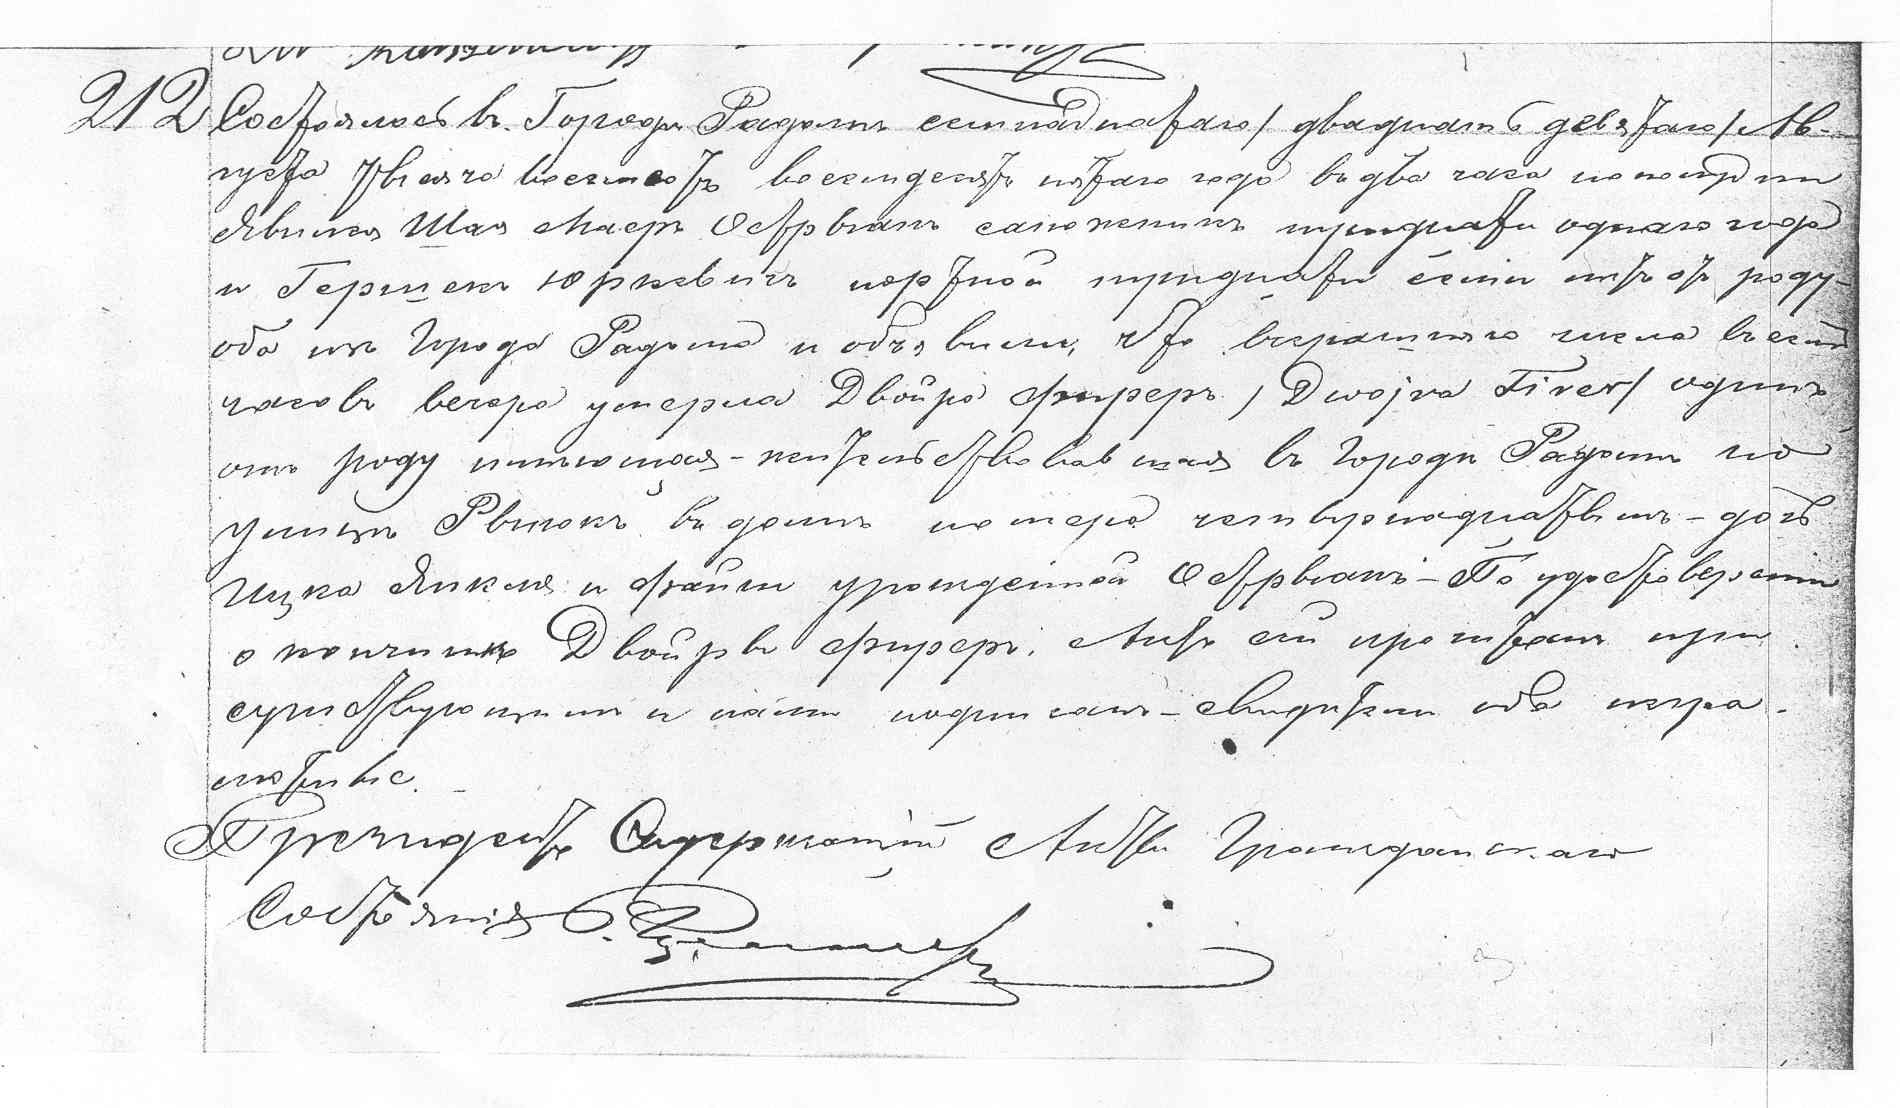 212 Состоялось въ Городѣ Радомѣ семнадцатаго / двадцать девятаго / Ав-
густа тысяча восемьсотъ восемдесятъ пятаго года въ два часа пополудни
Явились Шая Маеръ Обрвганъ сапожникъ тридцати одного года
и Гершекъ Юркевичъ портной тридцати семи лѣтъ отъ роду
оба изъ Города Радома и объявили, что вчерашняго числа въ семь
часовъ вечера умерла Двойра Фиреръ / Dwojra Firer / одинъ
отъ роду имѣющая - жительствовавшая въ Городѣ Радомѣ по
улицѣ Рынокъ въ домѣ номера четырнадцатымъ - дочь
Ицка Янкля и Файги урожденной - По удостовѣреніи
о кончинѣ Двойры Фиреръ. Актъ сей прочитанъ при
сутствующимъ и нами подписанъ - свидѣтели оба негра-
мотные.
Президентъ Содержащій Акты Гражданскаго
Состоянія